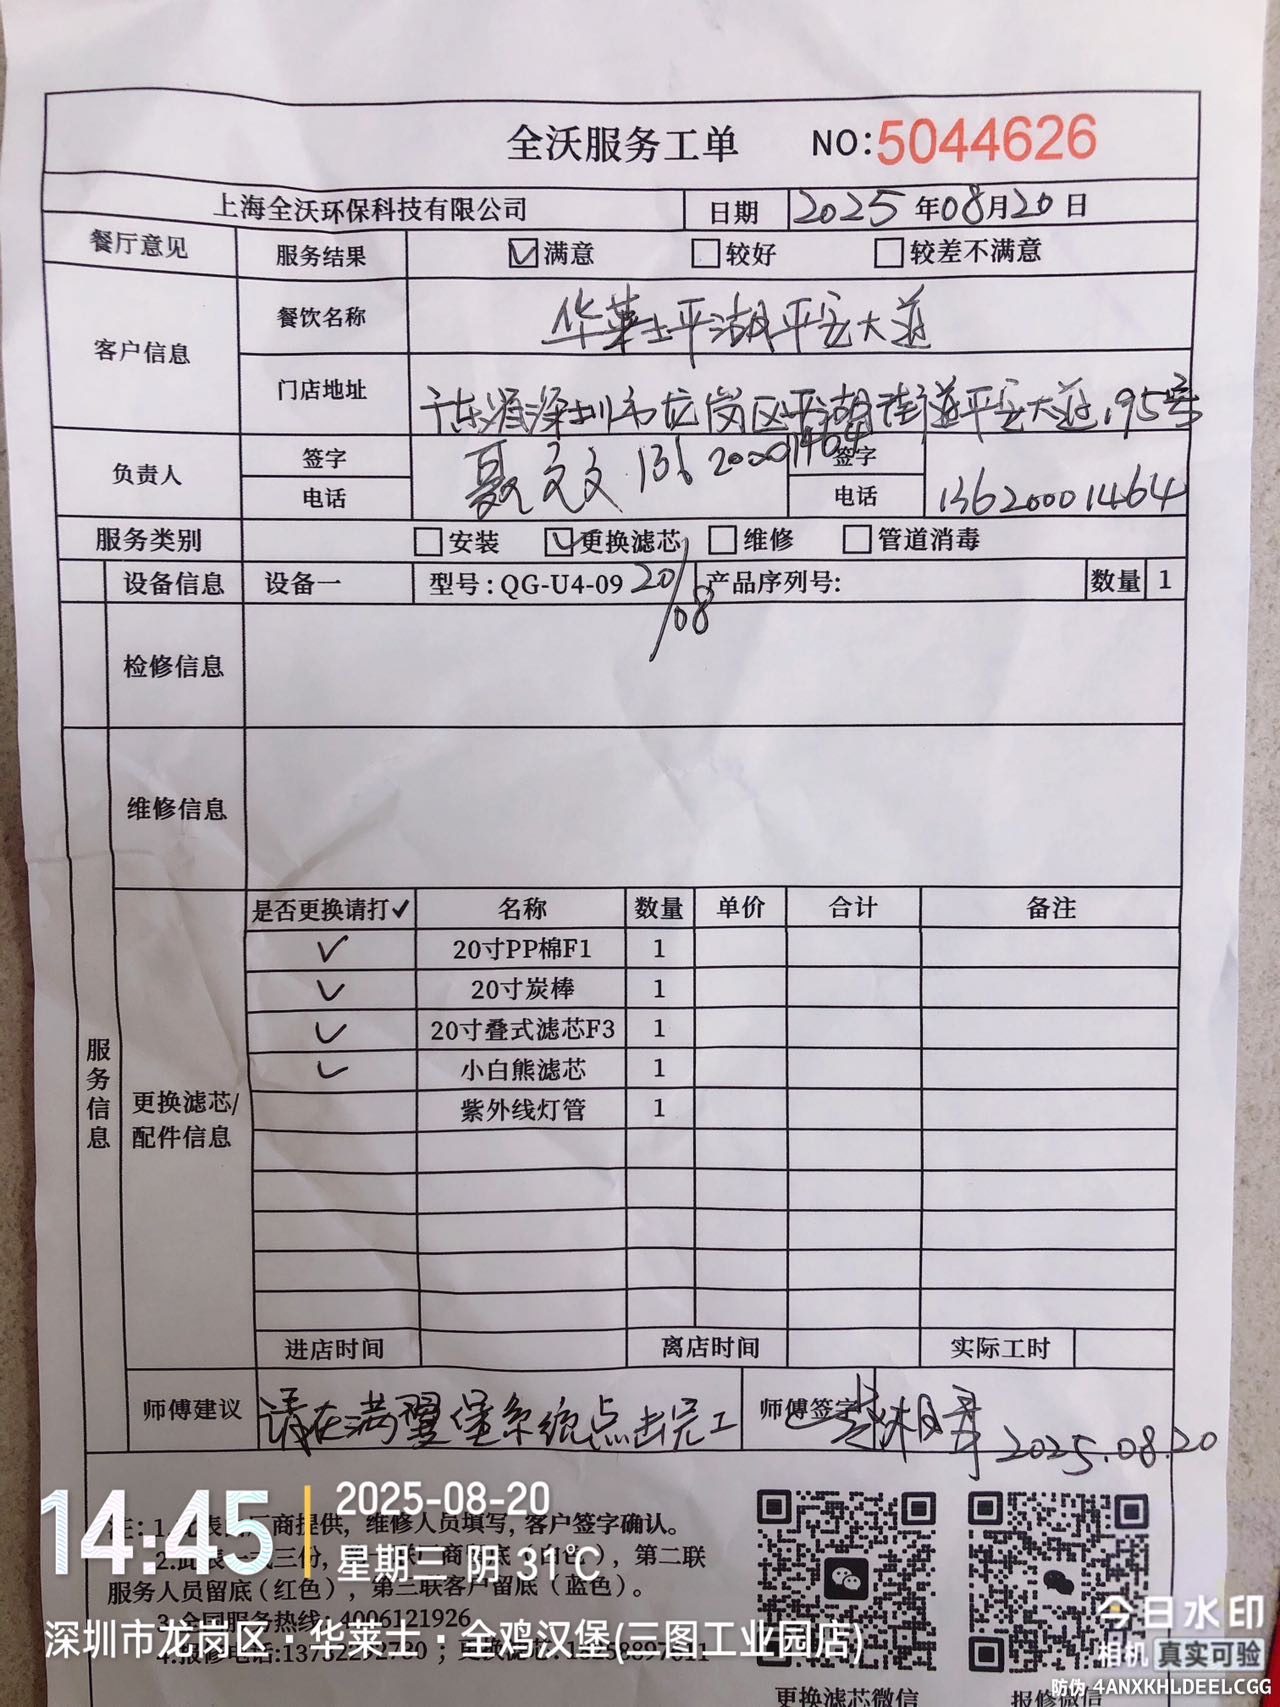 全沃服务工单 NO:5044626
上海全沃环保科技有限公司 日期 2025年08月20日
餐厅意见 服务结果 满意 较好 较差不满意
客户信息 餐饮名称 华莱士平湖平安大道
门店地址 广东省深圳市龙岗区平湖街道平安大道195号
负责人 签字 聂文文 13620001464 签字
电话 电话 13620001464
服务类别 安装 更换滤芯 维修 管道消毒
设备信息 设备一 型号:QG-U4-09 20/08 产品序列号: 数量 1
检修信息
维修信息
服务信息
更换滤芯/
配件信息
是否更换请打✓ 名称 数量 单价 合计 备注
✓ 20寸PP棉F1 1
✓ 20寸炭棒 1
✓ 20寸叠式滤芯F3 1
✓ 小白熊滤芯 1
紫外线灯管 1
进店时间 离店时间 实际工时
师傅建议 请在满翼堡系统点击完工 师傅签字 2025.08.20
注:1.此表由厂商提供,维修人员填写,客户签字确认。
2.此表一式三份,第一联厂商留底(白色),第二联
服务人员留底(红色),第三联客户留底(蓝色)。
3.全国服务热线:4006121926
4.报修电话: 更换滤芯:
更换滤芯微信 报修微信
14:45
2025-08-20
星期三 阴 31℃
深圳市龙岗区·华莱士·全鸡汉堡(三图工业园店)
今日水印
相机 真实可验
防伪 4ANXKHLDEELCGG